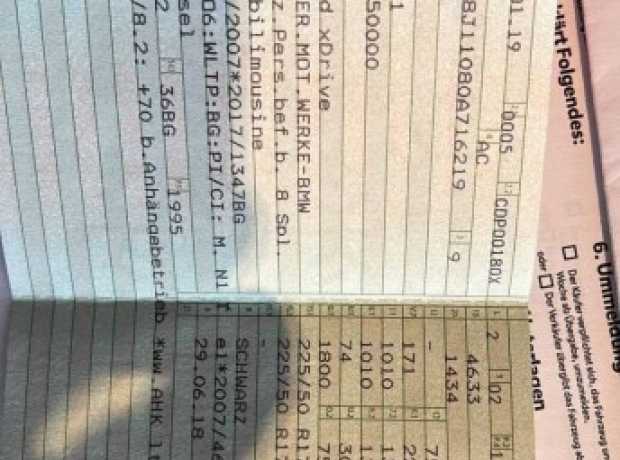 01.19 0005 CDP00180X
AC
8J11080A716219 9
1
50000
d xDrive
ER.MOT.WERKE-BMW
z.Pers.bef.b. 8 Spl.
bilimousine
/2007*2017/1347BG
06:WLTP:BG:PI/CI: M, N1
sel
2 36BG 1995
/8.2: +70 b.Anhängebetrieb *ww.AHK lt
2 02
4633
1434
-
171
1010
1010
74
1800
225/50 R17
225/50 R17
-
SCHWARZ
e1*2007/46
29.06.18
klärt Folgendes:
6. Ummeldung
Der Käufer verpflichtet sich, das Fahrzeug
Woche ab Übergabe, umzumelden.
oder Der Verkäufer übergibt das Fahrzeug